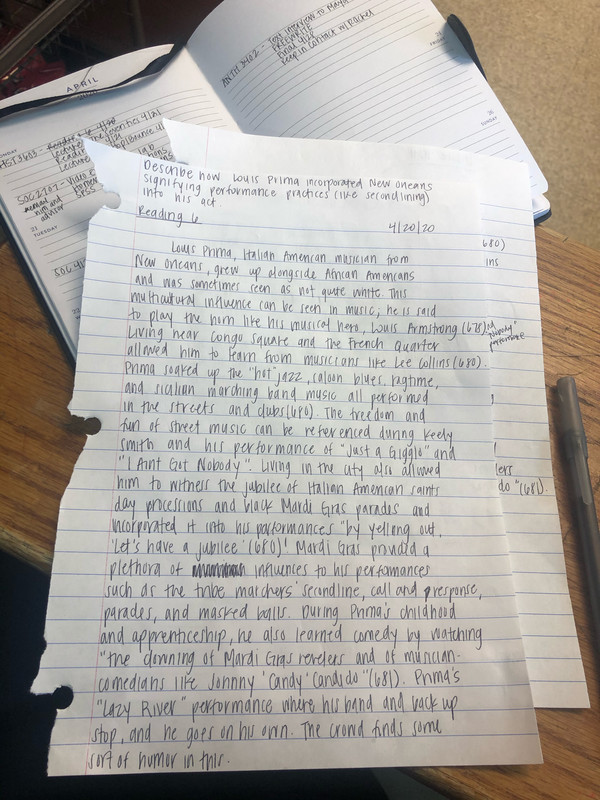 Text interview to
Final 4/28
Keep in contact w/ Rachel
SUNDAY
APRIL
lecture
4/21
SOC 2107 - Video
him and
advisor
21
TUESDAY
SOC
Describe how Louis Prima incorporated New Orleans
signifying performance practices (like secondlining)
into his act.
Reading 6
4/20/20
Louis Prima, Italian American musician from
New Orleans, grew up alongside African Americans
and was sometimes seen as not quite white. This
multicultural influence can be seen in music, he is said
to play the horn like his musical hero, Louis Armstrong (678)
Living near Congo Square and the French Quarter
allowed him to learn from musicians like Lee Collins (680).
Prima soaked up the "hot" jazz, saloon blues, ragtime,
and sicilian marching band music all performed
in the streets and clubs (680). The freedom and
fun of street music can be referenced during Keely
Smith and his performance of "Just a Gigolo" and
"I Aint Got Nobody". Living in the city also allowed
him to witness the jubilee of Italian American saints
day processions and black Mardi Gras parades and
incorporated it into his performances "by yelling out,
'Let's have a jubilee' (680)! Mardi Gras provided a
plethora of influences to his performances
such as the tribe marchers' secondline, call and response,
parades, and masked balls. During Prima's childhood
and apprenticeship, he also learned comedy by watching
"the clowning of Mardi Gras revelers and of musician-
comedians like Johnny 'Candy' Candido" (681). Prima's
"Lazy River" performance where his band and back up
stop, and he goes on his own. The crowd finds some
sort of humor in this.
680)
ins
Nobody"
performance
lers
do" (681).